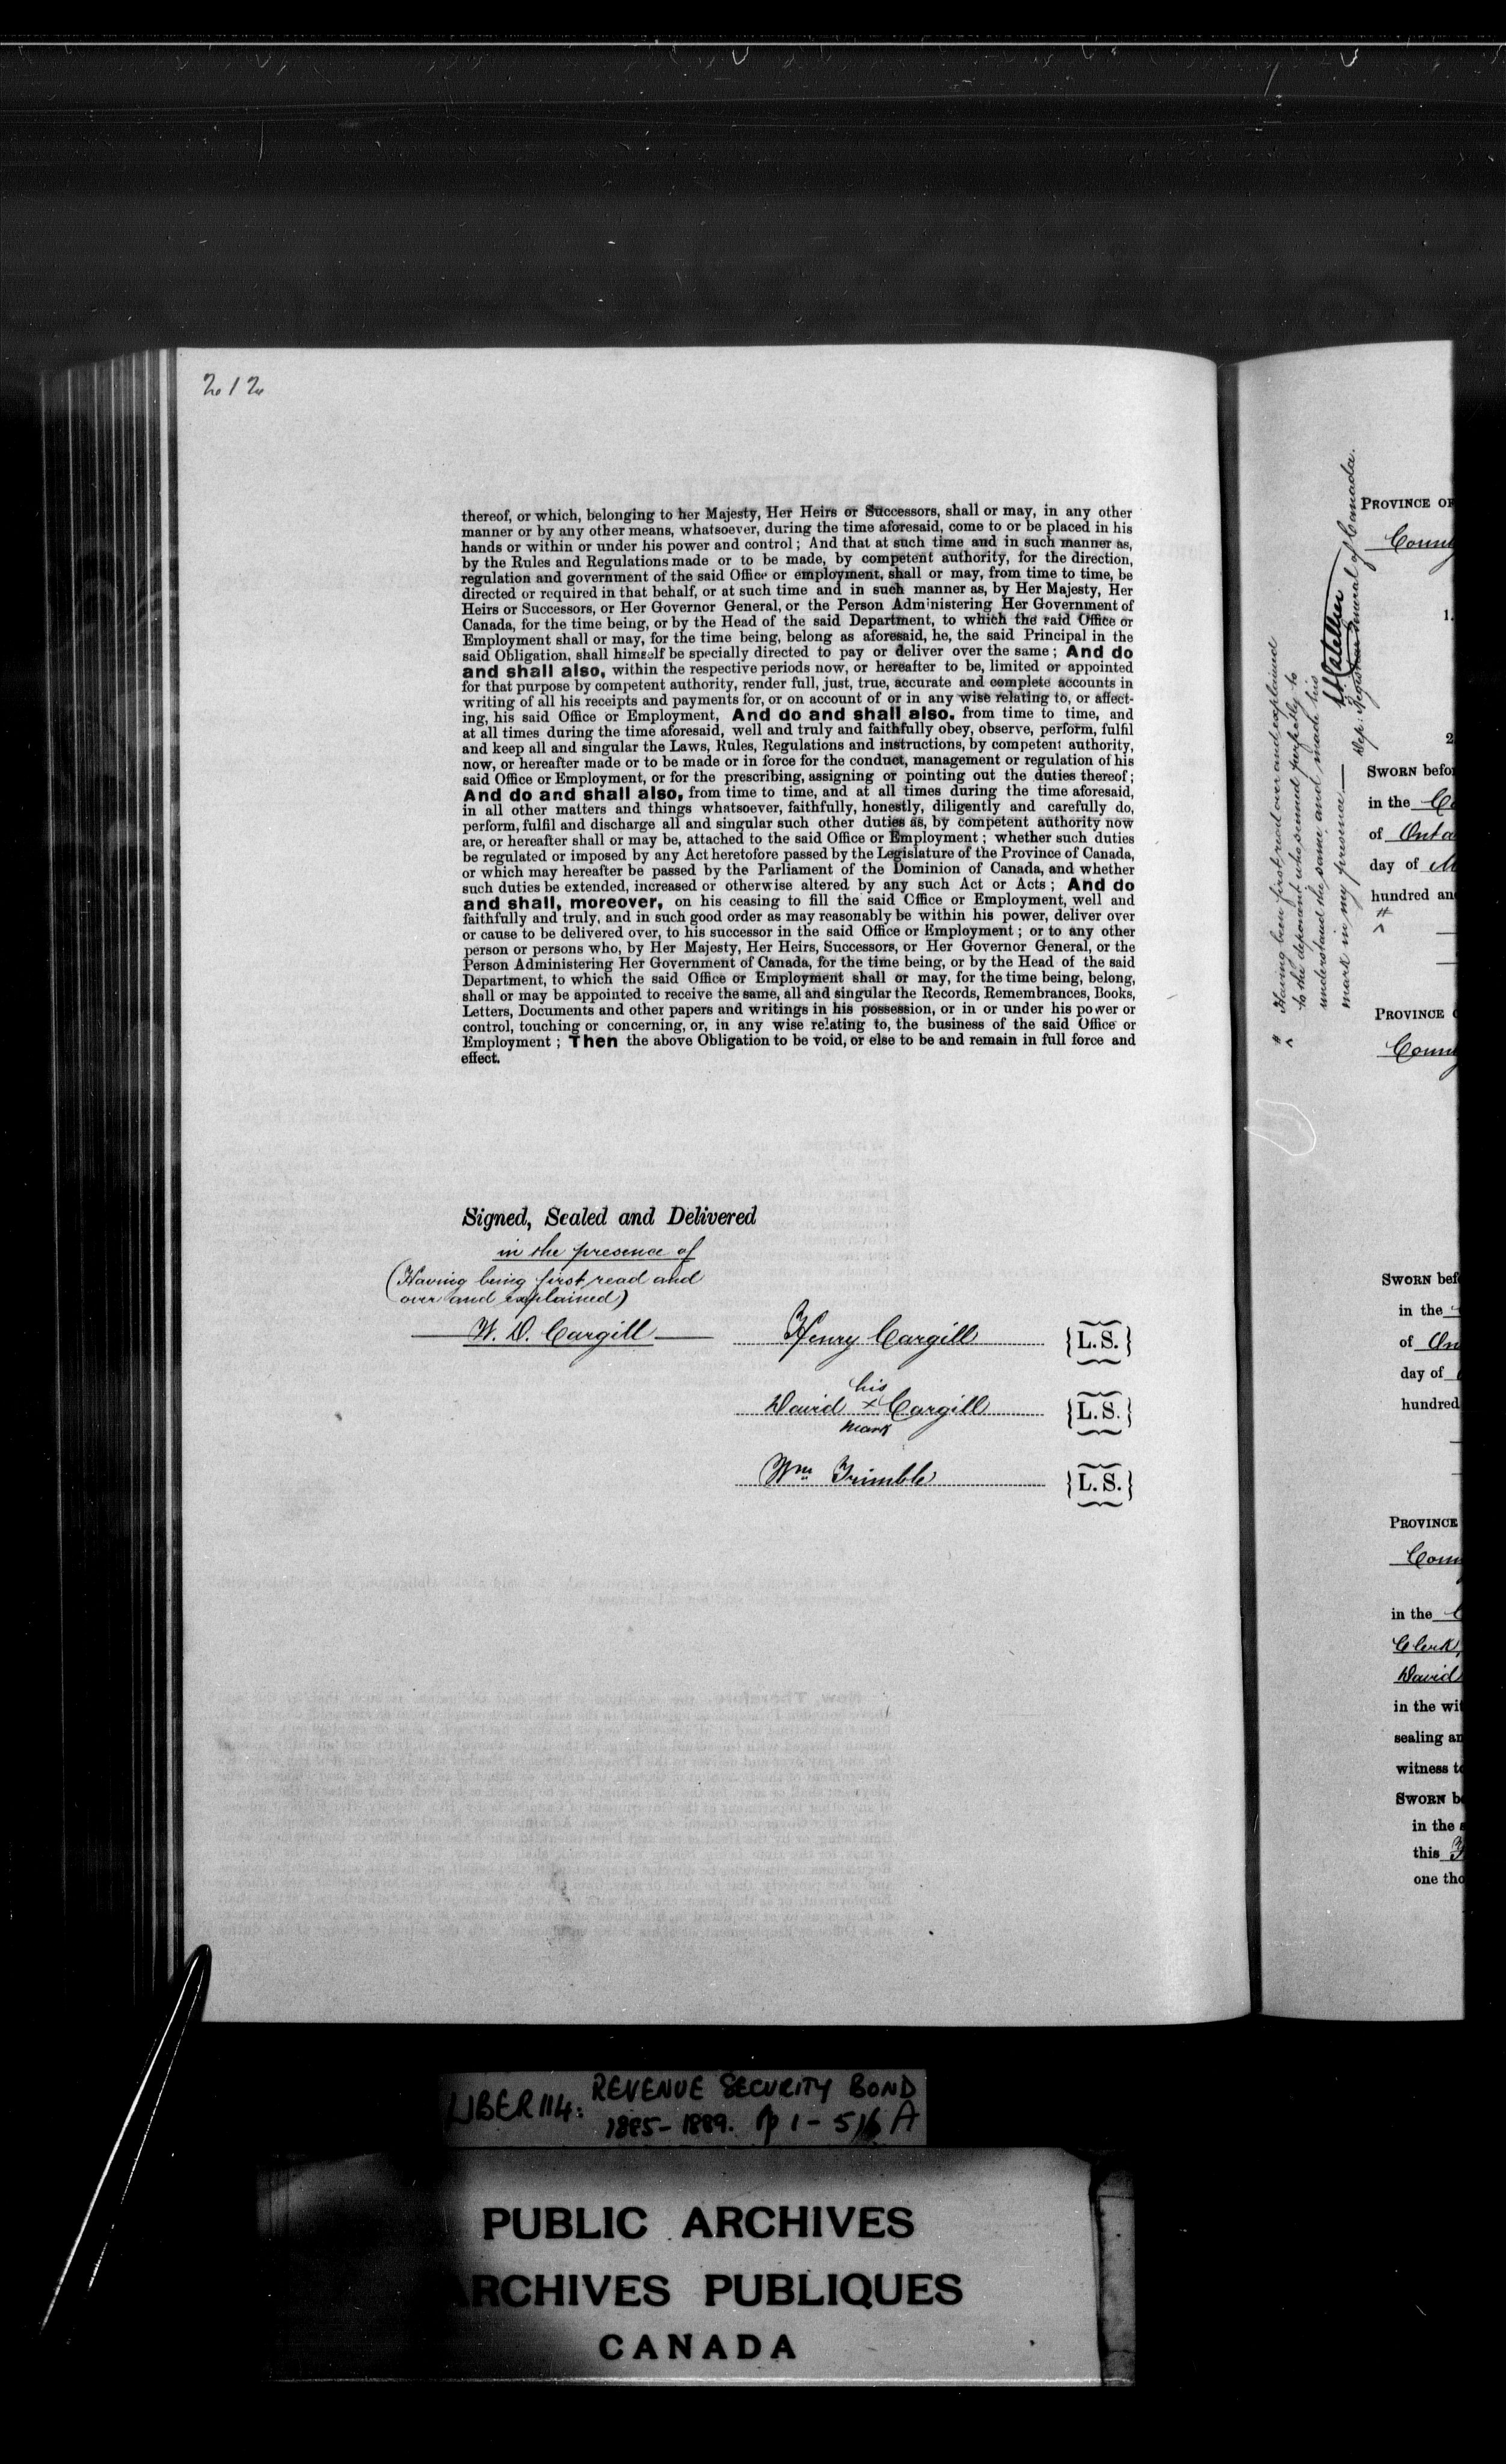 212
thereof, or which, belonging to her Majesty, Her Heirs or Successors, shall or may, in any other
manner or by any other means, whatsoever, during the time aforesaid, come to or be placed in his
hands or within or under his power and control; And that at such time and in such manner as,
by the Rules and Regulations made or to be made, by competent authority, for the direction,
regulation and government of the said Office or employment, shall or may, from time to time, be
directed or required in that behalf, or at such time and in such manner as, by Her Majesty, Her
Heirs or Successors, or Her Governor General, or the Person Administering Her Government of
Canada, for the time being, or by the Head of the said Department, to which the said Office or
Employment shall or may, for the time being, belong as aforesaid, he, the said Principal in the
said Obligation, shall himself be specially directed to pay or deliver over the same; And do
and shall also, within the respective periods now, or hereafter to be, limited or appointed
for that purpose by competent authority, render full, just, true, accurate and complete accounts in
writing of all his receipts and payments for, or on account of or in any wise relating to, or affect-
ing, his said Office or Employment, And do and shall also, from time to time, and
at all times during the time aforesaid, well and truly and faithfully obey, observe, perform, fulfil
and keep all and singular the Laws, Rules, Regulations and instructions, by competent authority,
now, or hereafter made or to be made or in force for the conduct, management or regulation of his
said Office or Employment, or for the prescribing, assigning or pointing out the duties thereof;
And do and shall also, from time to time, and at all times during the time aforesaid,
in all other matters and things whatsoever, faithfully, honestly, diligently and carefully do,
perform, fulfil and discharge all and singular such other duties as, by competent authority now
are, or hereafter shall or may be, attached to the said Office or Employment; whether such duties
be regulated or imposed by any Act heretofore passed by the Legislature of the Province of Canada,
or which may hereafter be passed by the Parliament of the Dominion of Canada, and whether
such duties be extended, increased or otherwise altered by any such Act or Acts; And do
and shall, moreover, on his ceasing to fill the said Office or Employment, well and
faithfully and truly, and in such good order as may reasonably be within his power, deliver over
or cause to be delivered over, to his successor in the said Office or Employment; or to any other
person or persons who, by Her Majesty, Her Heirs, Successors, or Her Governor General, or the
Person Administering Her Government of Canada, for the time being, or by the Head of the said
Department, to which the said Office or Employment shall or may, for the time being, belong,
shall or may be appointed to receive the same, all and singular the Records, Remembrances, Books,
Letters, Documents and other papers and writings in his possession, or in or under his power or
control, touching or concerning, or, in any wise relating to, the business of the said Office or
Employment; Then the above Obligation to be void, or else to be and remain in full force and
effect.
Signed, Sealed and Delivered
in the presence of
(Having being first read and
over and explained)
W. D. Cargill
Henry Cargill {L.S.}
his
David x Cargill {L.S.}
mark
Wm Trimble {L.S.}
Having been first read over and explained
to the deponent who seemed perfectly to
understand the same and made his
mark in my presence
Dep: Registrar General of Canada.
PROVINCE OF
County
1.
2
SWORN befo
in the
of Onta
day of M
hundred an
PROVINCE
County
SWORN bef
in the
of On
day of
hundred
PROVINCE
Coun
in the
Clerk,
David
in the wit
sealing an
witness to
SWORN b
in the s
this
one tho
LIBER 114: REVENUE SECURITY BOND
1885-1889. pp 1-516 A
PUBLIC ARCHIVES
ARCHIVES PUBLIQUES
CANADA